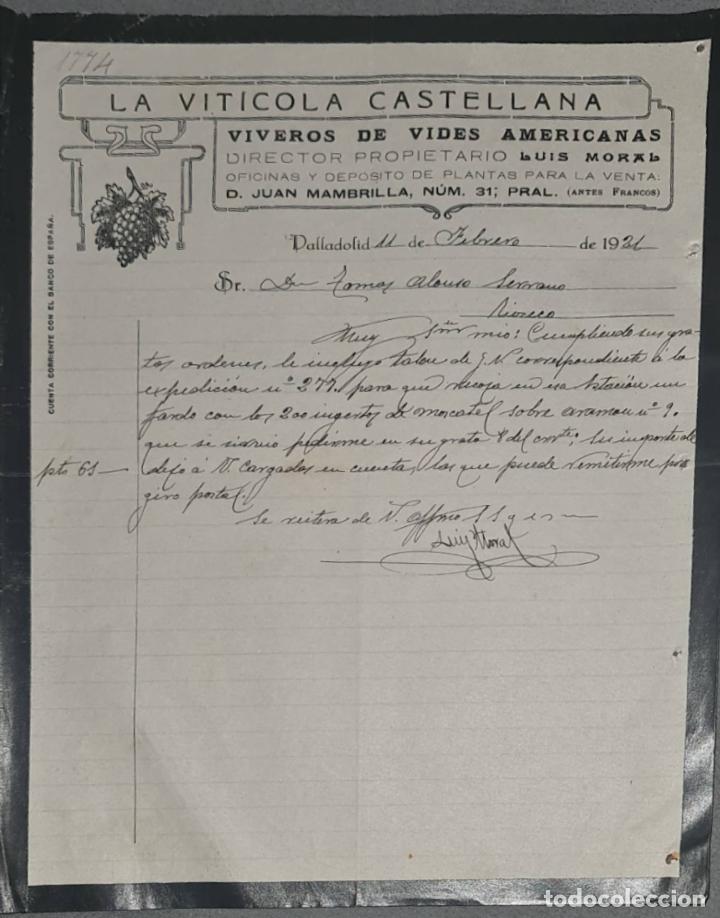 1774
LA VITICOLA CASTELLANA
VIVEROS DE VIDES AMERICANAS
DIRECTOR PROPIETARIO LUIS MORAL
OFICINAS Y DEPÓSITO DE PLANTAS PARA LA VENTA:
D. JUAN MAMBRILLA, NÚM. 31; PRAL. (ANTES FRANCOS)
CUENTA CORRIENTE CON EL BANCO DE ESPAÑA.
Valladolid 11 de Febrero de 1921
Sr. Dn Tomas Alonso Serrano
Rioseco
Muy Sr mio: Cumpliendo sus gra-
tas ordenes, le incluyo talon de correspondiente á la
expedición nº 277. para que recoja en esa Estación un
fardo con los 200 ingertos de moscatel sobre aramon nº 9.
que se sirvio pedirme en su grata 8 del crrte; Su importe le
pts 61— dejo á V. Cargadas en cuenta, las que puede remitirme por
giro postal.
Se reitera de V. affmo S S q e s m
Luis Moral
todocoleccion